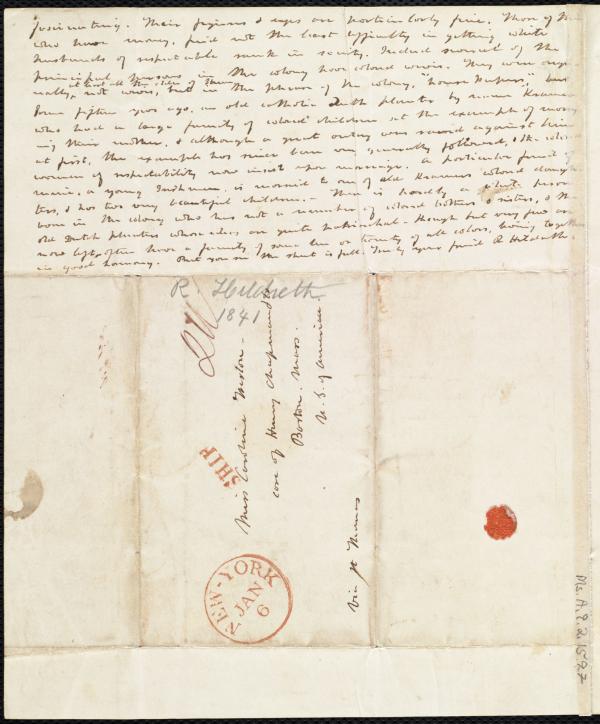 fascinating. Their figures & eyes are particularly fine. Those of them
who have money, find not the least difficulty in getting white
husbands of respectable rank in society. Indeed several of the
principal persons in the colony have colored wives. They were origi-
at least all the older of them
nally, not wives, but in the phrase of the colony, "house keepers", but
some fifteen years ago, an old catholic Dutch planter by name
who had a large family of colored children set the example of marry
ing their mother, & although a great outcry was raised against him
at first, the example has since been very generally followed, & the colored
women of respectability now insist upon marriage. A particular friend of
mine, a young is married to one of old colored daugh-
ters, & has two very beautiful children. - There is hardly a white person
born in the colony who has not a number of colored brothers & sisters, & the
old Dutch planters whose ideas are quite patriarchal - though but very few are
now left, often have a family of some ten or twenty of all colors, living together
in good harmony. But you see the sheet is full. Truly your friend R Hildreth.
R. Hildreth
1841
SHIP
Miss Caroline Weston -
care of Henry Chapman
Boston. Mass.
U. S. of America.
via St Thomas
NEW-YORK
JAN
6
Ms. A. 9. 2. 15.